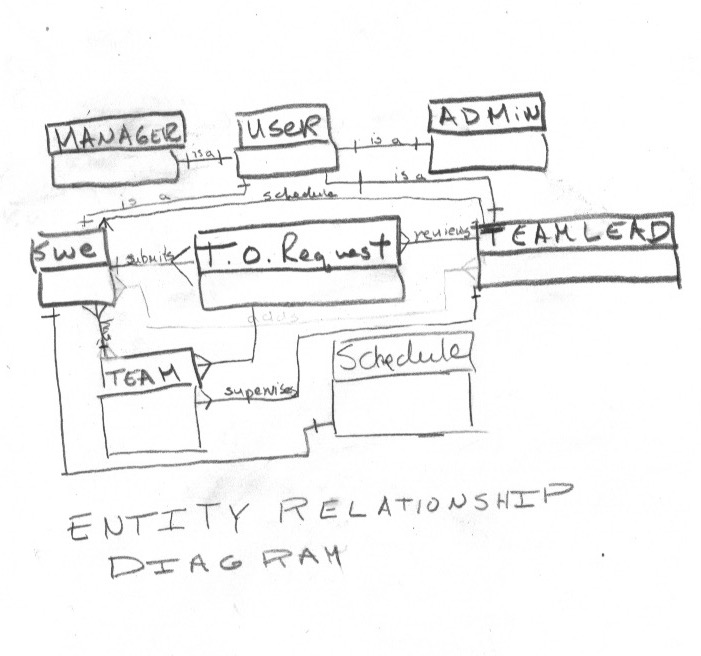 MANAGER
USER
ADMIN
is a
is a
is a
is a
schedule
SWE
submits
T.O. Request
reviews
TEAMLEAD
adds
TEAM
supervises
Schedule
ENTITY RELATIONSHIP
DIAGRAM